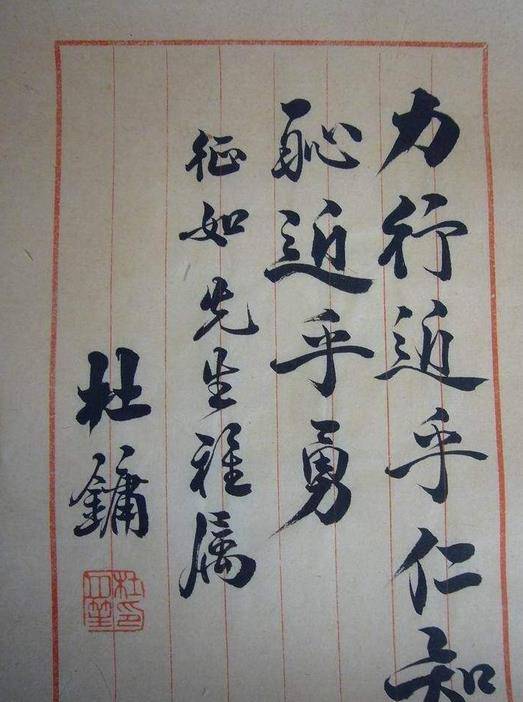 力行近乎仁知
恥近乎勇
征如先生雅属
杜鏞